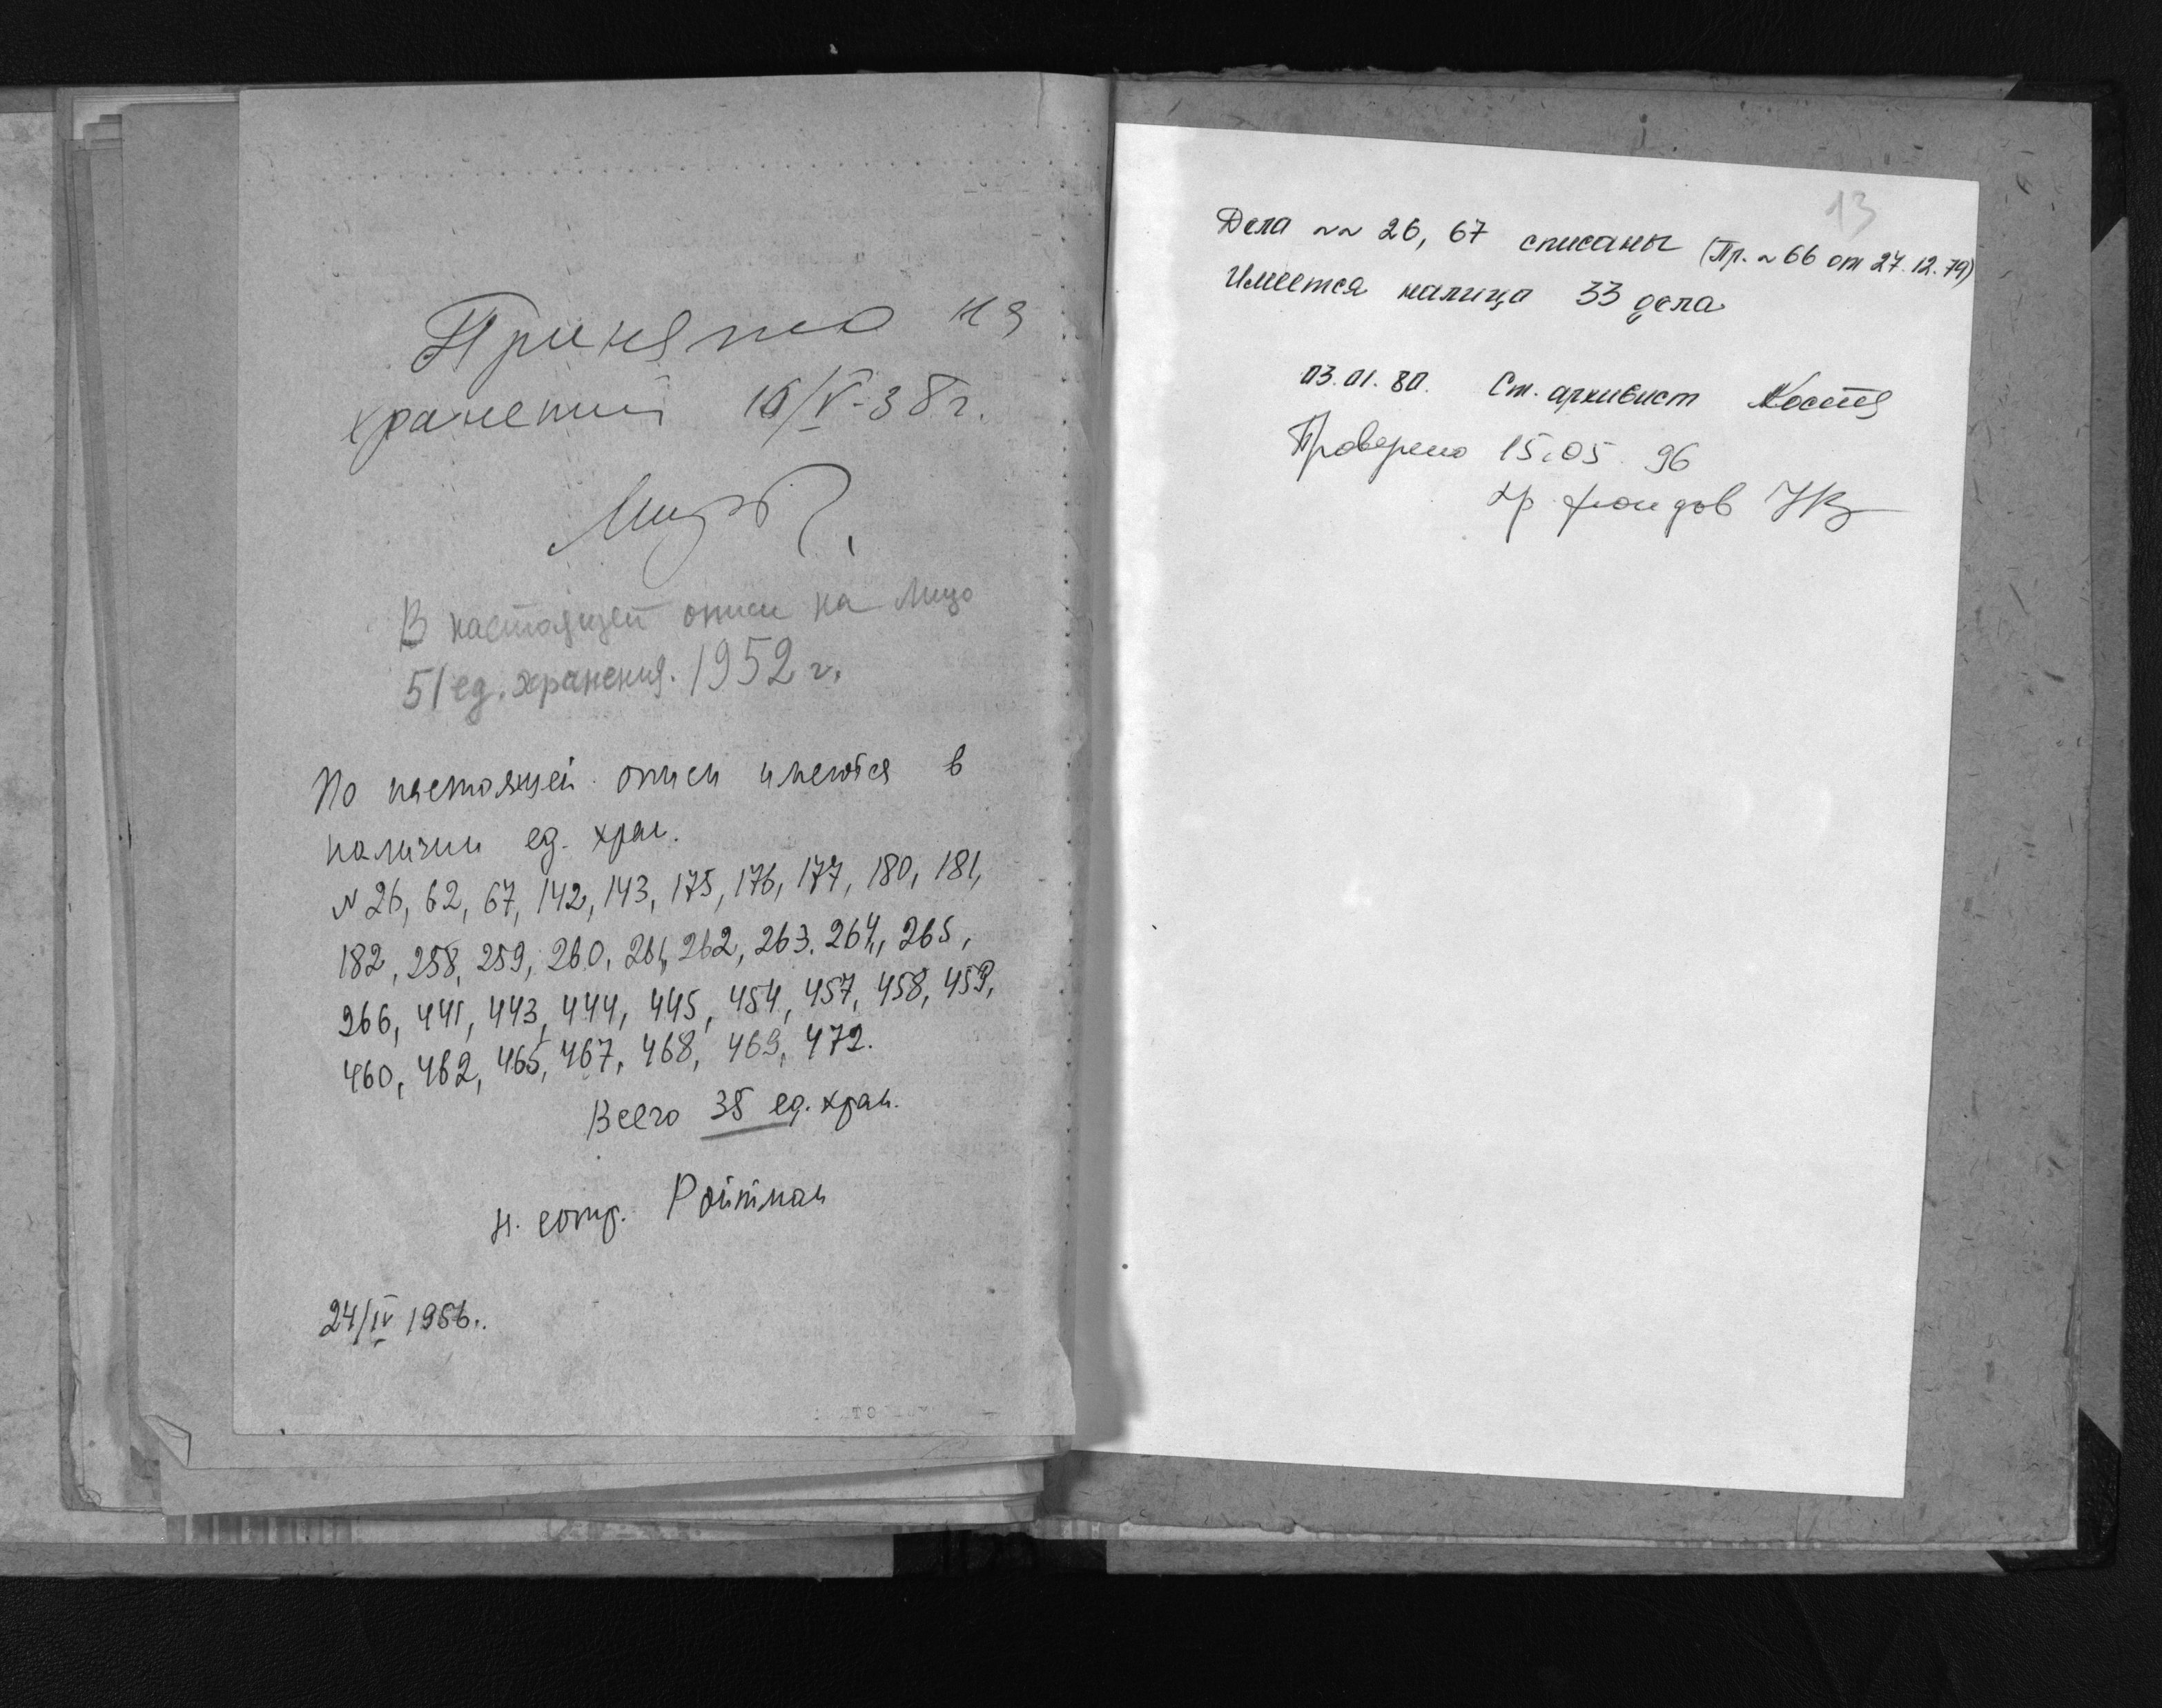 Принято на
хранении 16/V-38 г.
В настоящей описи на лицо
51 ед. хранения. 1952 г.
По настоящей описи имеются в
наличии ед. хран.
N 26, 62, 67, 142, 143, 175, 176, 177, 180, 181,
182, 258, 259, 260, 261, 262, 263, 264, 265,
266, 441, 443, 444, 445, 454, 457, 458, 459,
460, 462, 465, 467, 468, 469, 472.
Всего 35 ед. хран.
н. сотр. Ройтман
24/IV 1956.
13
Дела ~~ 26, 67 списаны (Пр. ~ 66 от 27.12.79)
Имеется налицо 33 дела
03.01.80. Ст. архивист
Проверено 15.05.96
хр. фондов